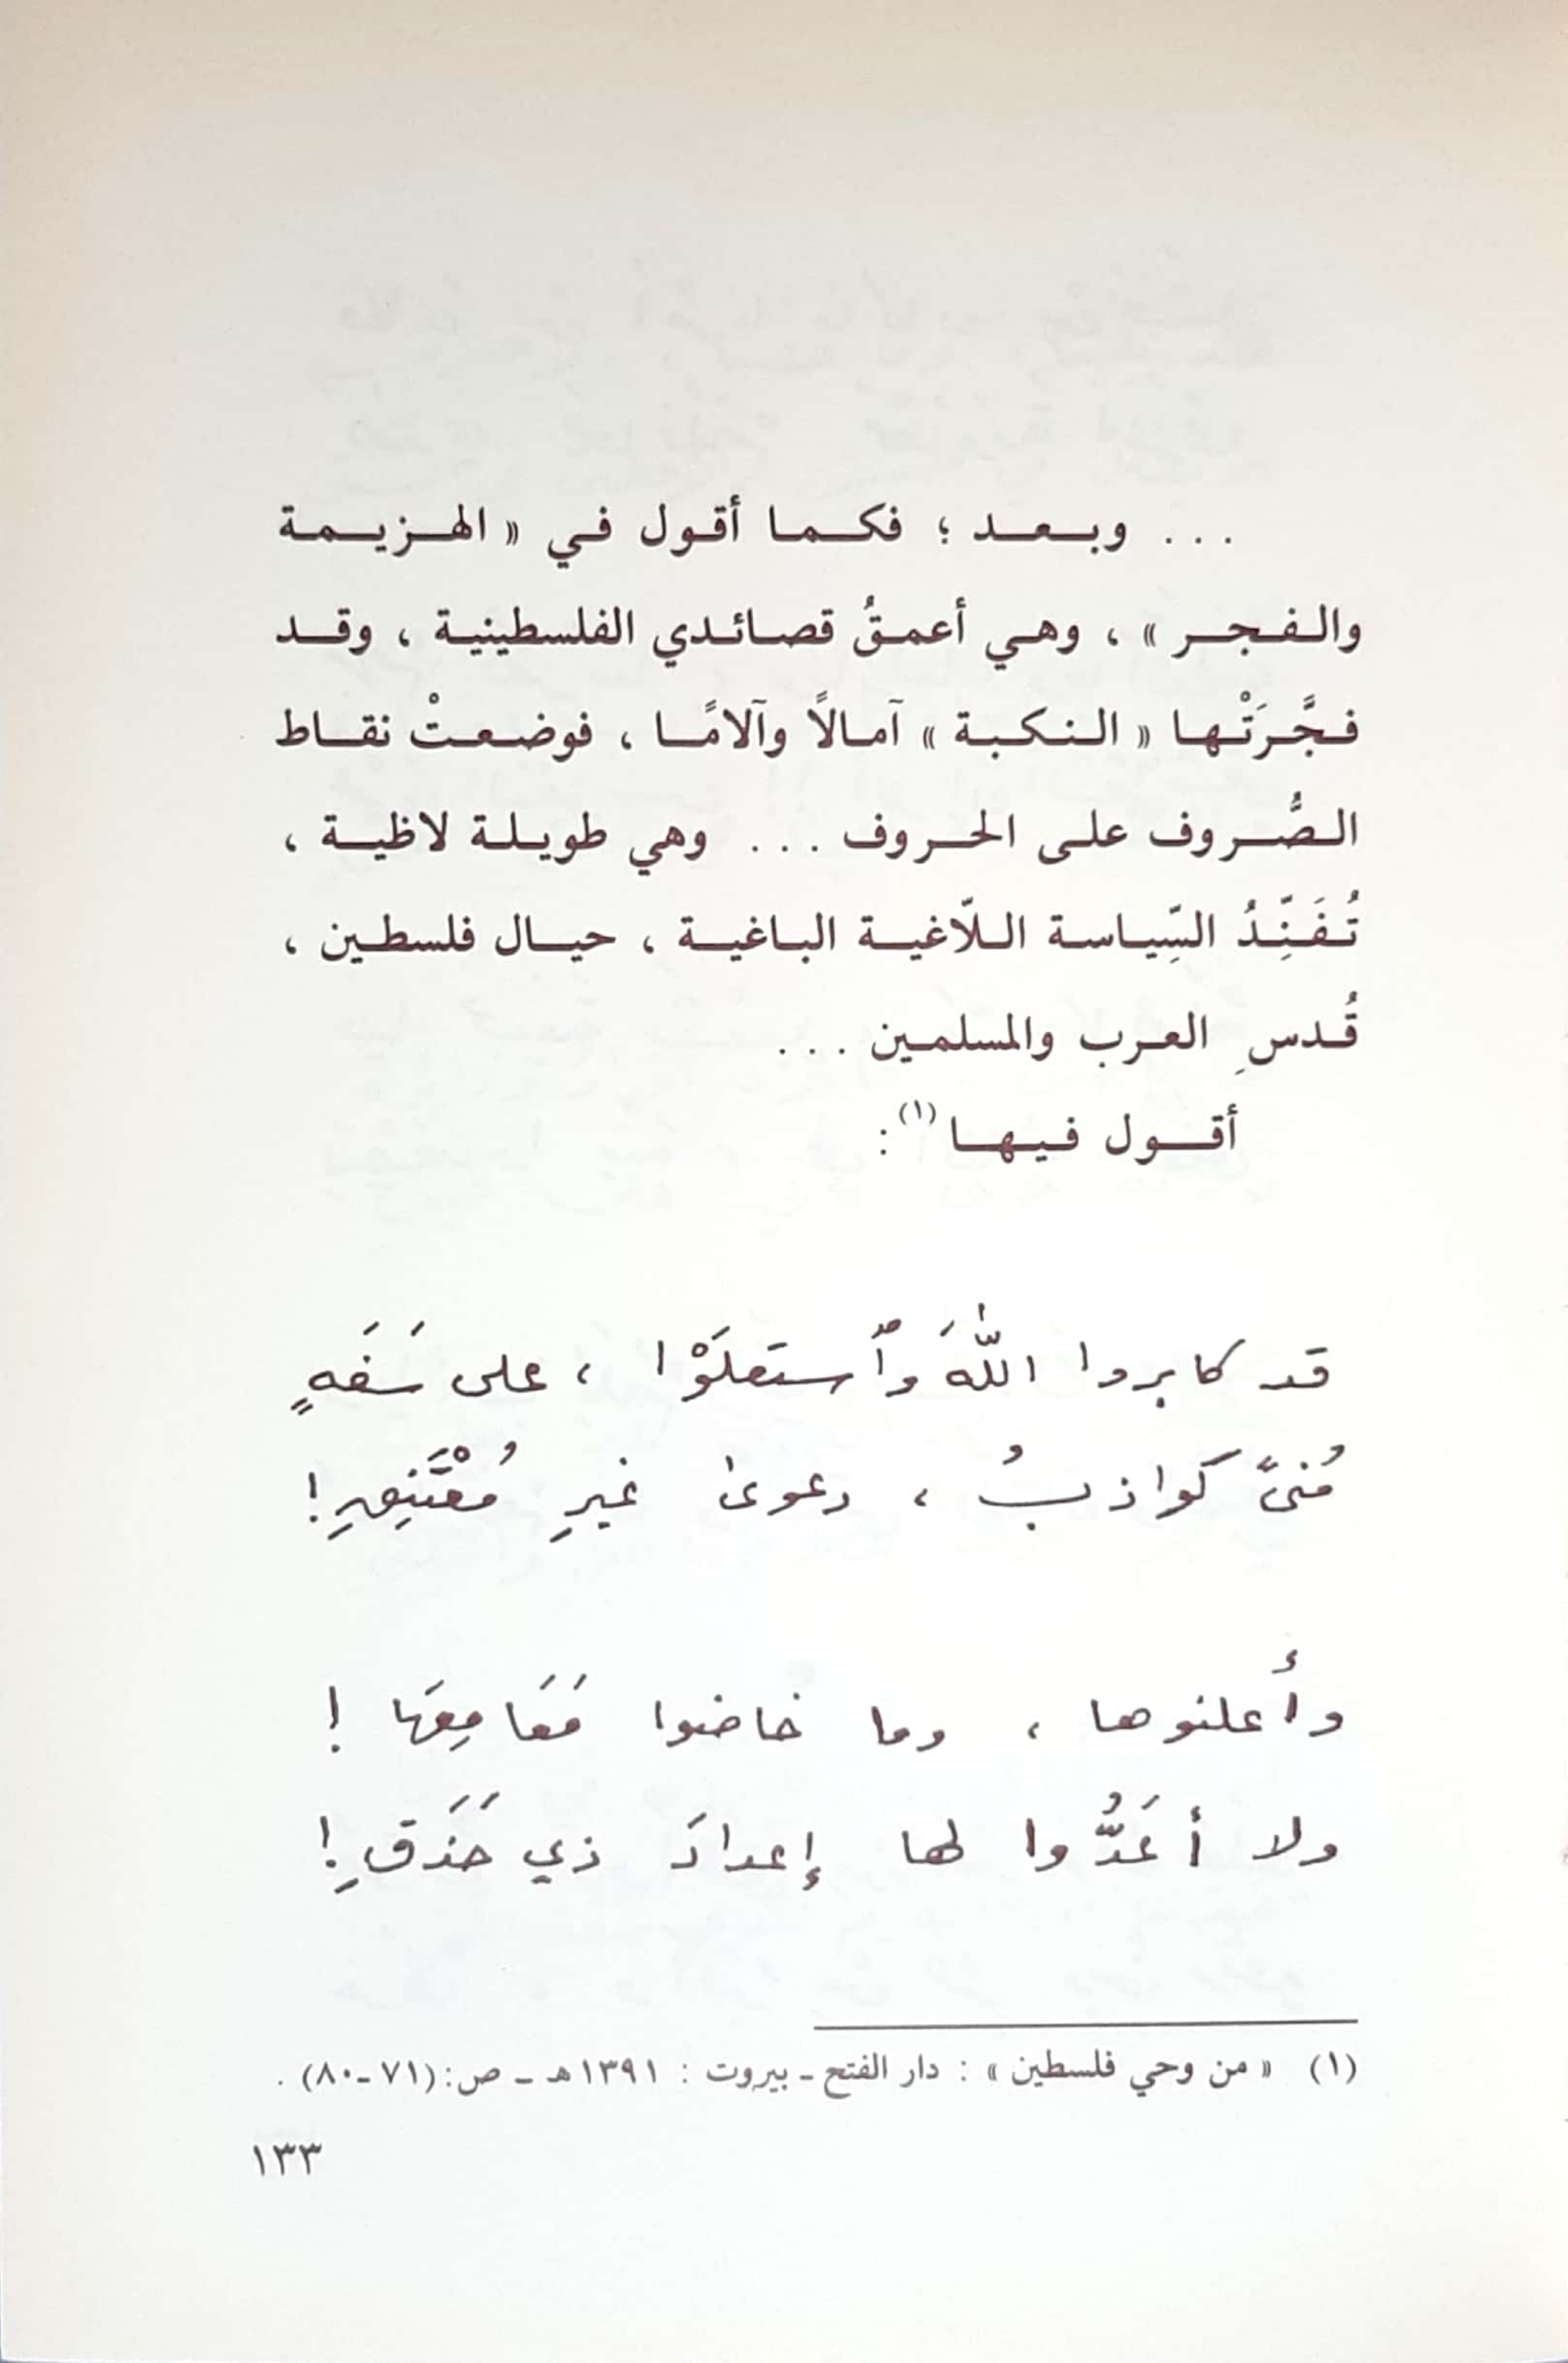 ... وبعد ؛ فكما أقول في « الهزيمة
والفجر » ، وهي أعمقُ قصائدي الفلسطينية ، وقد
فجَّرَتْها « النكبة » آمالاً وآلامًا ، فوضعتْ نقاط
الصُّروف على الحروف ... وهي طويلة لاظية ،
تُفَنِّدُ السِّياسة اللّاغية الباغية ، حيال فلسطين ،
قُدسِ العرب والمسلمين ...
أقول فيها (١) :
قد كابروا اللّٰهَ وَٱستعلَوْا ، على سَفَهٍ
مُنىً كواذبُ ، دعوىٰ غيرِ
وأعلنوها ، وما خاضوا مَعَامِعَها !
ولا أعَدُّوا لها إعدادَ ذي حَذَقِ !
(١) « من وحي فلسطين » : دار الفتح ـ بيروت : ١٣٩١ هـ ـ ص : (٧١ - ٨٠) .
١٣٣